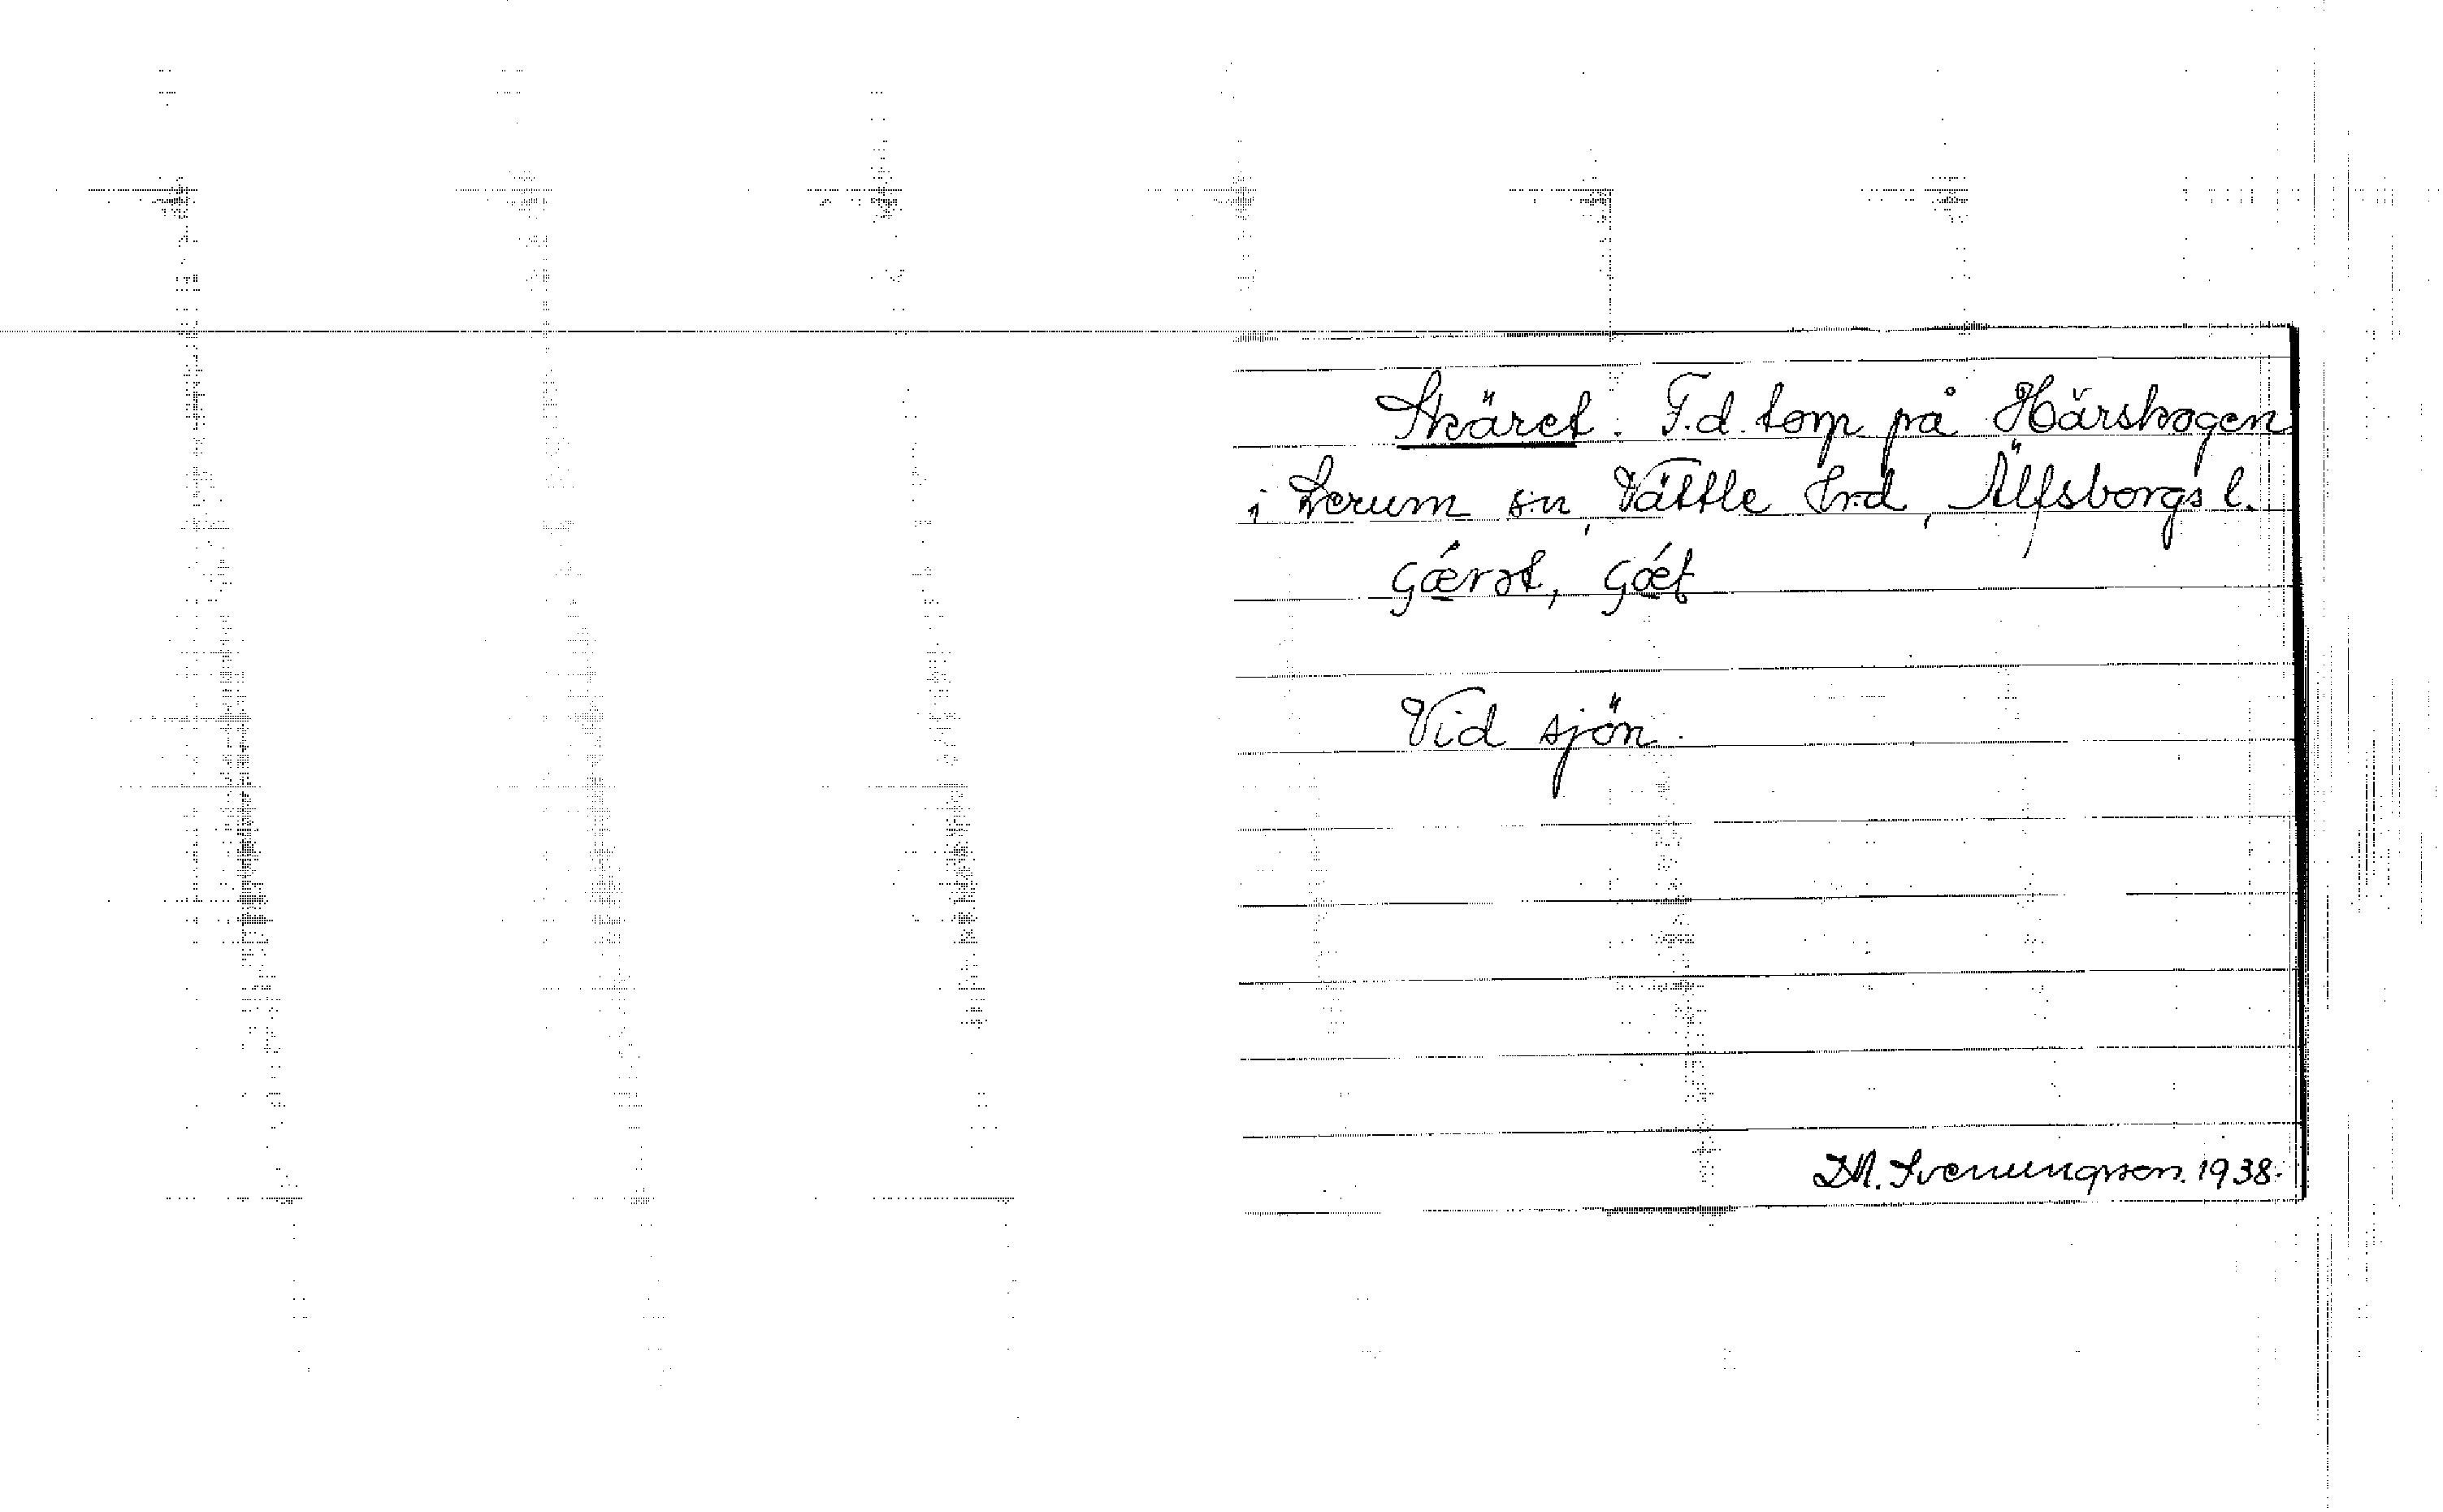 Skäret. F.d. torp på Härskogen
i Lerum sn, Vättle hrd, Älfsborgs l.
Vid sjön.
D.A. Svenungsson. 1938.